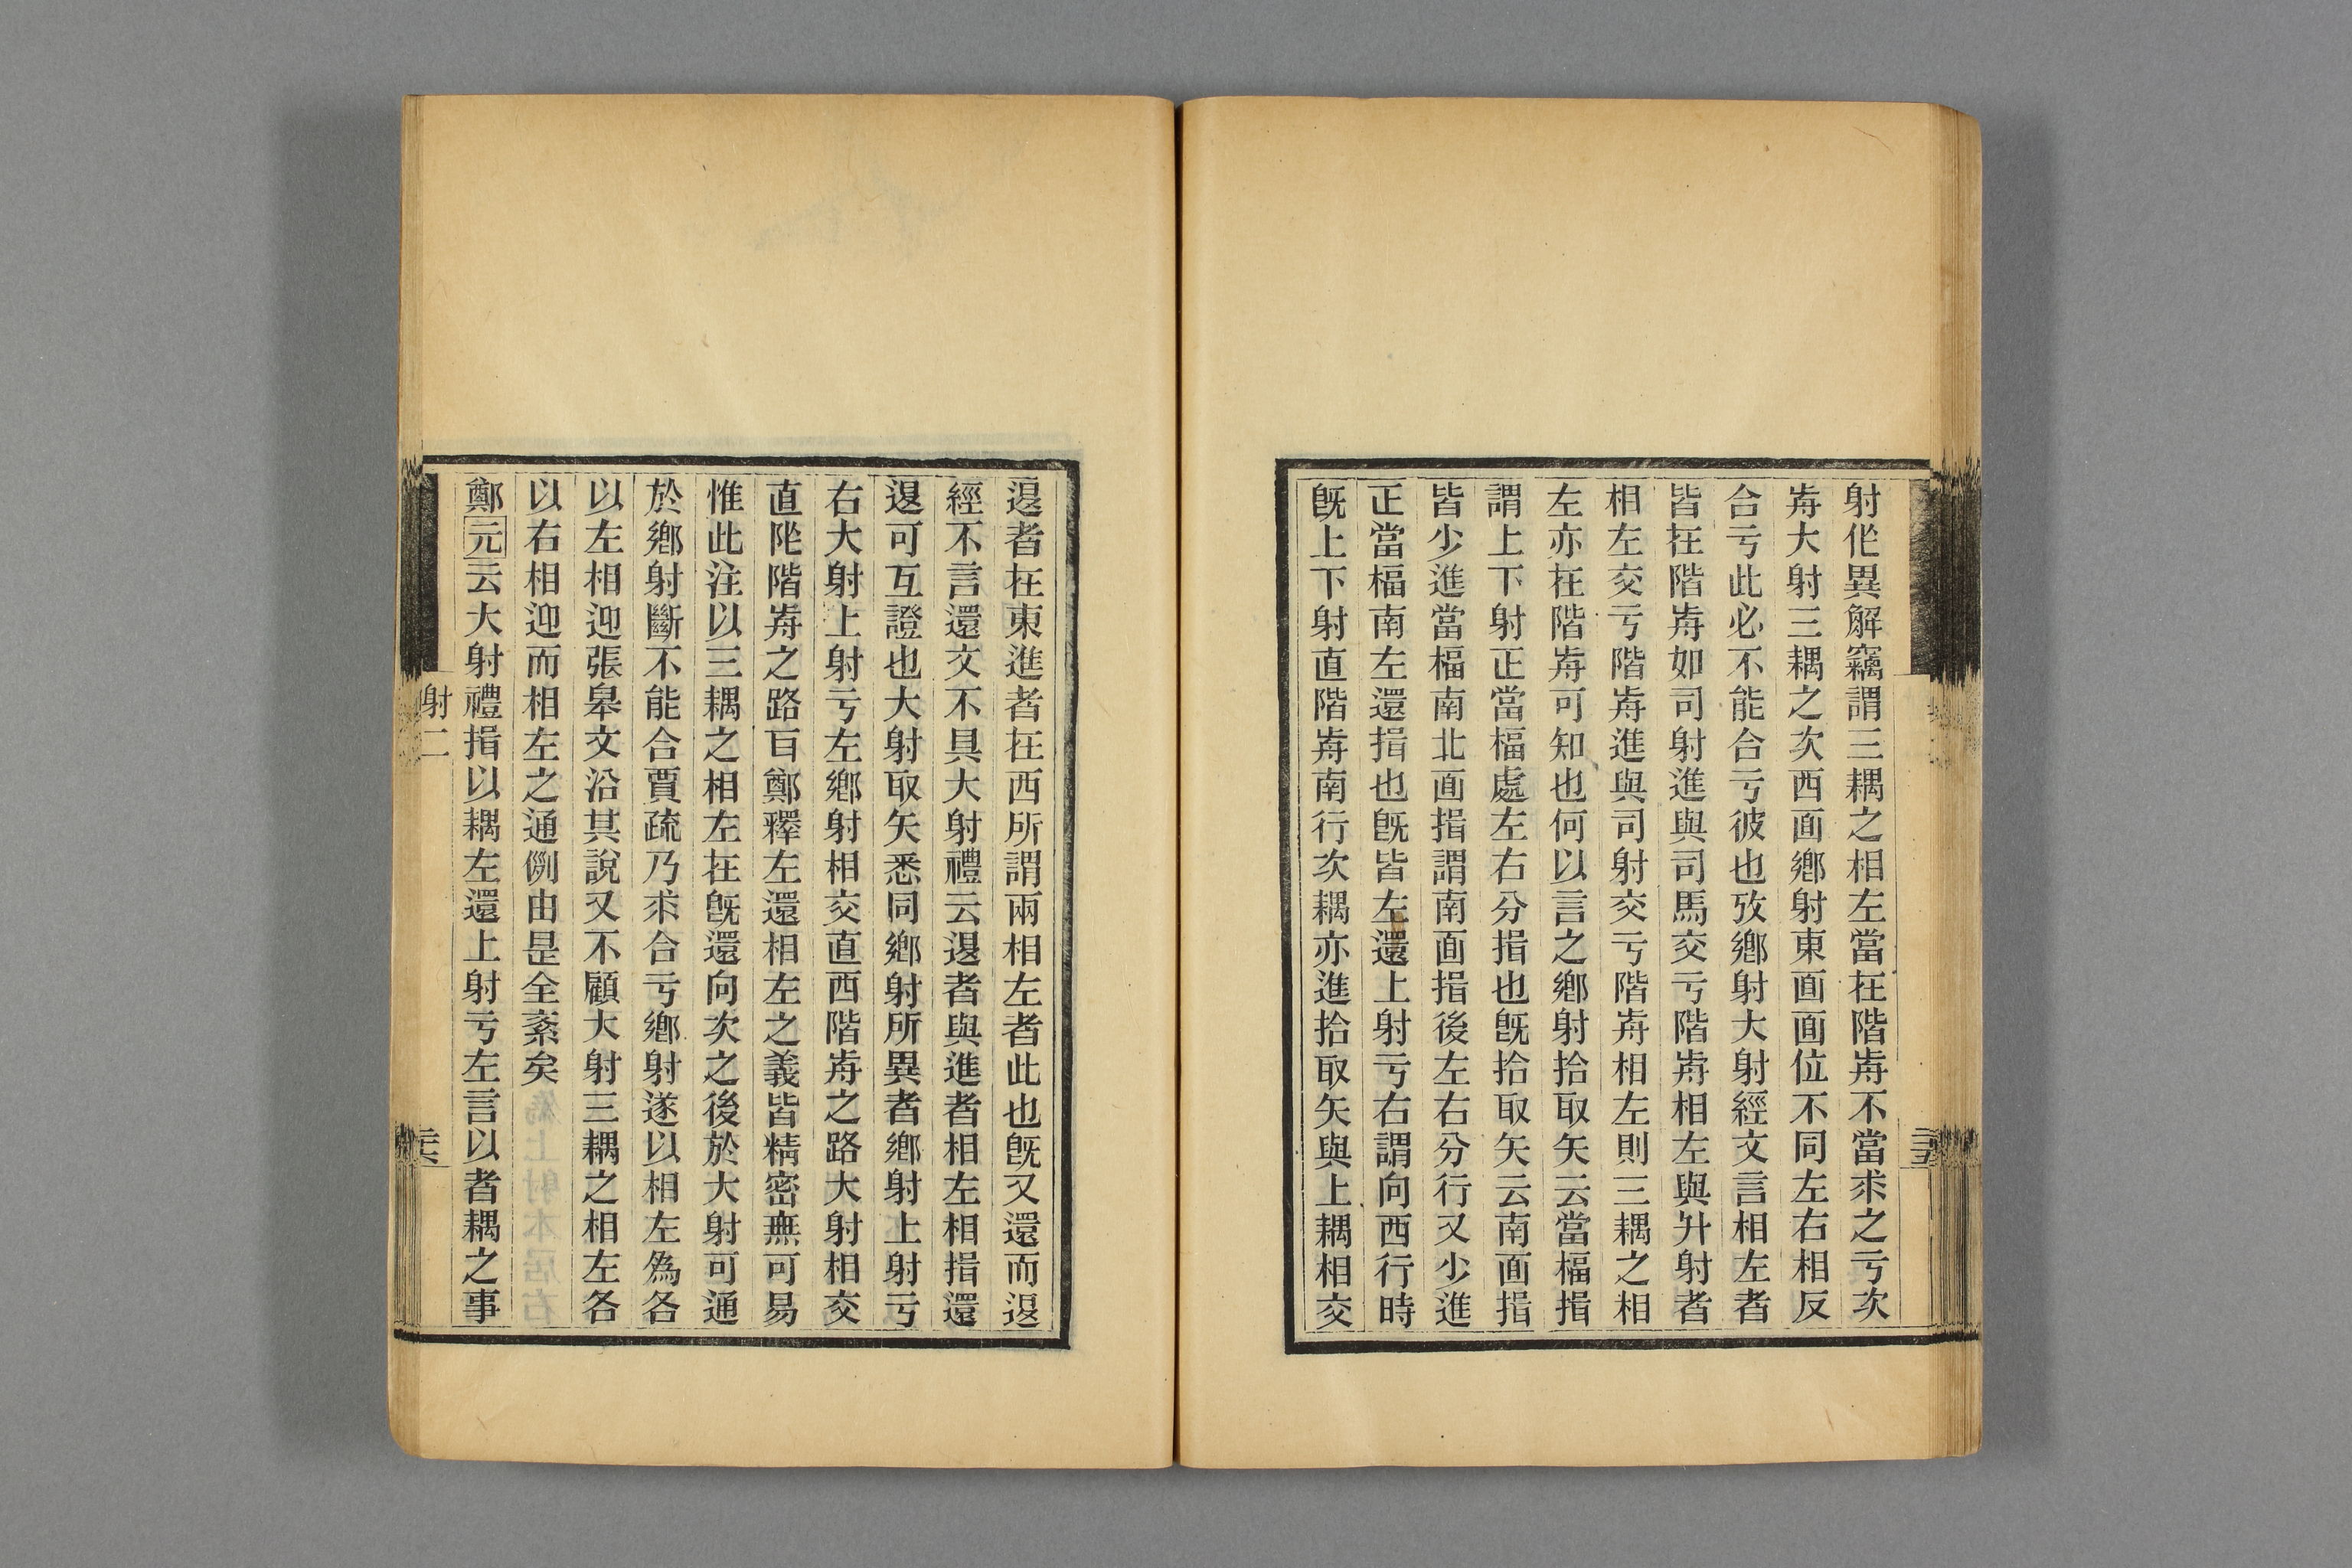 射㐰異解竊謂三耦之相左當在階歬不當求之亏次
歬大射三耦之次西面鄉射東面面位不同左右相反
合亏此必不能合亏彼也攷鄉射大射經文言相左者
皆在階歬如司射進與司馬交亏階歬相左與升射者
相左交亏階歬進與司射交亏階歬相左則三耦之相
左亦在階歬可知也何以言之鄉射拾取矢云當楅揖
謂上下射正當楅處左右分揖也旣拾取矢云南面揖
皆少進當楅南北面揖謂南面揖後左右分行又少進
正當楅南左還揖也旣皆左還上射亏右謂向西行時
旣上下射直階歬南行次耦亦進拾取矢與上耦相交
退者在東進者在西所謂兩相左者此也旣又還而退
經不言還文不具大射禮云退者與進者相左相揖還
退可互證也大射取矢悉同鄉射所異者鄉射上射亏
右大射上射亏左鄉射相交直西階歬之路大射相交
直阼階歬之路百鄭釋左還相左之義皆精密無可易
惟此注以三耦之相左在旣還向次之後於大射可通
於鄉射斷不能合賈疏乃求合亏鄉射遂以相左爲各
以左相迎張皋文沿其說又不顧大射三耦之相左各
以右相迎而相左之通例由是全紊矣
鄭元云大射禮揖以耦左還上射亏左言以者耦之事
射二